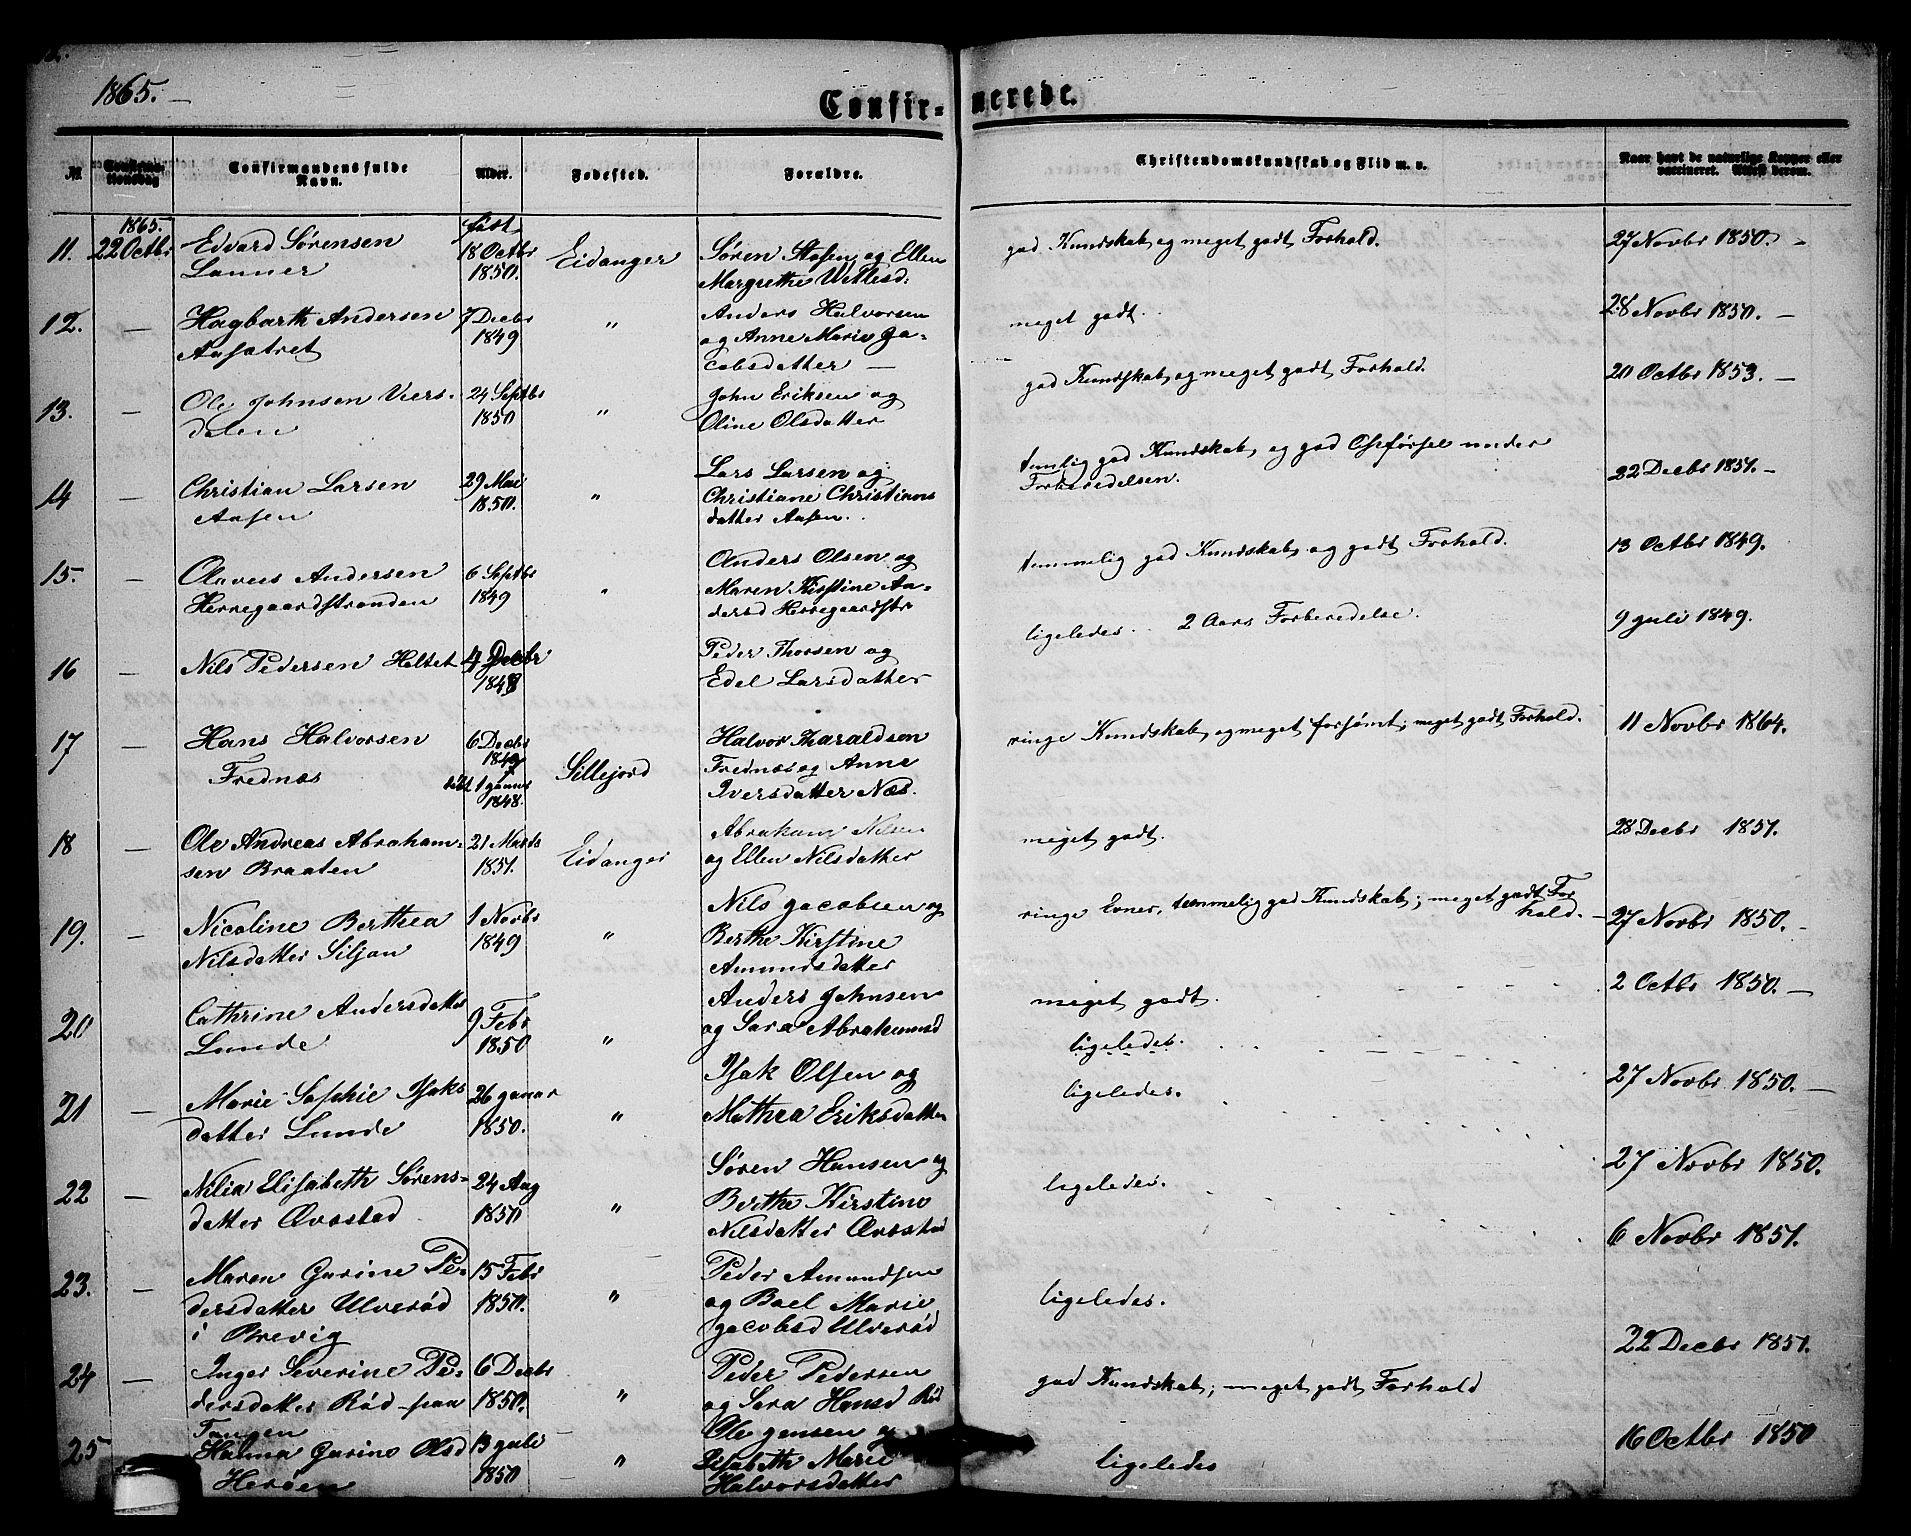 1865. —
Confir-merede.
№
Confirmationsdag
Confirmandens fulde Navn.
Alder.
Fødested.
Forældre.
Christendomskundskab og Flid m. v.
Naar havt de naturlige Kopper eller vaccineret. Attest derom.
1865. født
11. 22 Octbr Edvard Sørensen 18 Octbr Eidanger Søren Stofen og Ellen god Kundskab og meget godt Forhold. 27 Novbr 1850. —
Lanner 1850. Margrethe
12. — Hagbarth Andersen 7 Decbr " Anders Halvorsen meget godt. 28 Novbr 1850. —
1849 og Anne Marie Ja-
cobsdatter —
13. — Ole Johnsen Viers- 24 Septbr " John Eriksen og god Kundskab og meget godt Forhold. 20 Octbr 1853. —
dalen 1850 Oline Olsdatter
14 — Christian Larsen 29 Mai " Lars Larsen og god Kundskab, og god Opførsel under 22 Decbr 1851. —
Aasen 1850. Christiane Christians Forberedelsen.
datter Aasen.
15. — Olaves Andersen 6 Septbr " Anders Olsen og temmelig god Kundskab, og godt Forhold. 13 Octbr 1849.
Herregaardstranden 1849 Maren Kirstine An-
dersd Herregaardstr
16 — Nils Pedersen Heltet 4 Decbr Peder Thorsen og ligeledes. 2 Aars Forberedelse. 9 Juli 1849.
1848 Edel Larsdatter
17 — Hans Halvorsen 6 Decbr Sillejord Halvor Tharaldsen ringe Kundskab, og meget forsømt; meget godt Forhold. 11 Novbr 1864.
Frednæs 1849 Frednæs og Anne
1848. Iversdatter Næs.
18 — Ole Andreas Abraham- 21 Marts Eidanger Abraham Nilsen meget godt. 28 Decbr 1851.
sen Braaten 1851. og Ellen Nilsdatter
19. — Nicoline Berthea 1 Novbr " Nils Jacobsen og ringe Evner, temmelig god Kundskab; meget godt For- 27 Novbr 1850.
Nilsdatter Siljan 1849 Berthe Kirstine hold. —
Amundsdatter
20 Cathrine Andersdatter 9 Febr " Anders Johnsen meget godt. 2 Octbr 1850. —
Lunde 1850 og Sara Abrahamsd ligeledes.
21 — Marie Sophie Isaks 26 Januar " Isak Olsen og ligeledes. 27 Novbr 1850. —
datter Lunde 1850. Mathea Eriksdatter
22 — Nilia Elisabeth Sørens- 24 Aug " Søren Hansen og ligeledes. 27 Novbr 1850.
datter Ørstad 1850 Berthe Kirstine
Nilsdatter Ørstad
23. — Maren Gurine Pe- 15 Febr " Peder Amundsen ligeledes. 6 Novbr 1851.
dersdatter Ulverød 1850. og Boel Marie
i Brevig Jacobsd Ulverød
24 — Inger Severine Pe- 6 Decbr " Peder Pedersen god Kundskab; meget godt Forhold 22 Decbr 1851.
dersdatter Rød paa 1850. og Sara Hansd Rød
Tangen
25 Halma Gurine Olsd 13 Juli " Ole Jensen og ligeledes 16 Octbr 1850
Herøen 1850 — Elisabeth Marie
Halvorsdatter